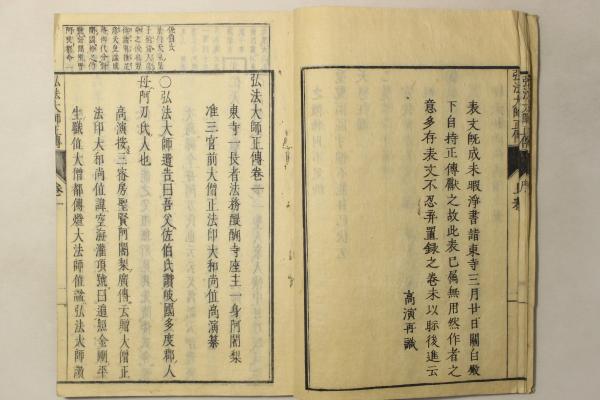 表文既成未暇浄書諸東寺三月廿日關白殿
下自持正傳獻之故此表已属無用然作者之
意多存表文不忍弃置録之卷末以貽後進云
高演再識
弘法大師正傳
弘法大師正傳卷一
東寺一長者法務醍醐寺座主一身阿闍梨
准三宮前大僧正法印大和尚位高演纂
〇弘法大師遺告曰吾父佐伯氏讃岐國多度郡人
母阿刀氏人也
高演按三寳房聖賢阿闍梨廣傳云贈大僧正
法印大和尚位諱空海灌頂號曰遍照金剛平
生職位大僧都傳燈大法師位諡弘法大師讃
弘法大師正傳
卷一